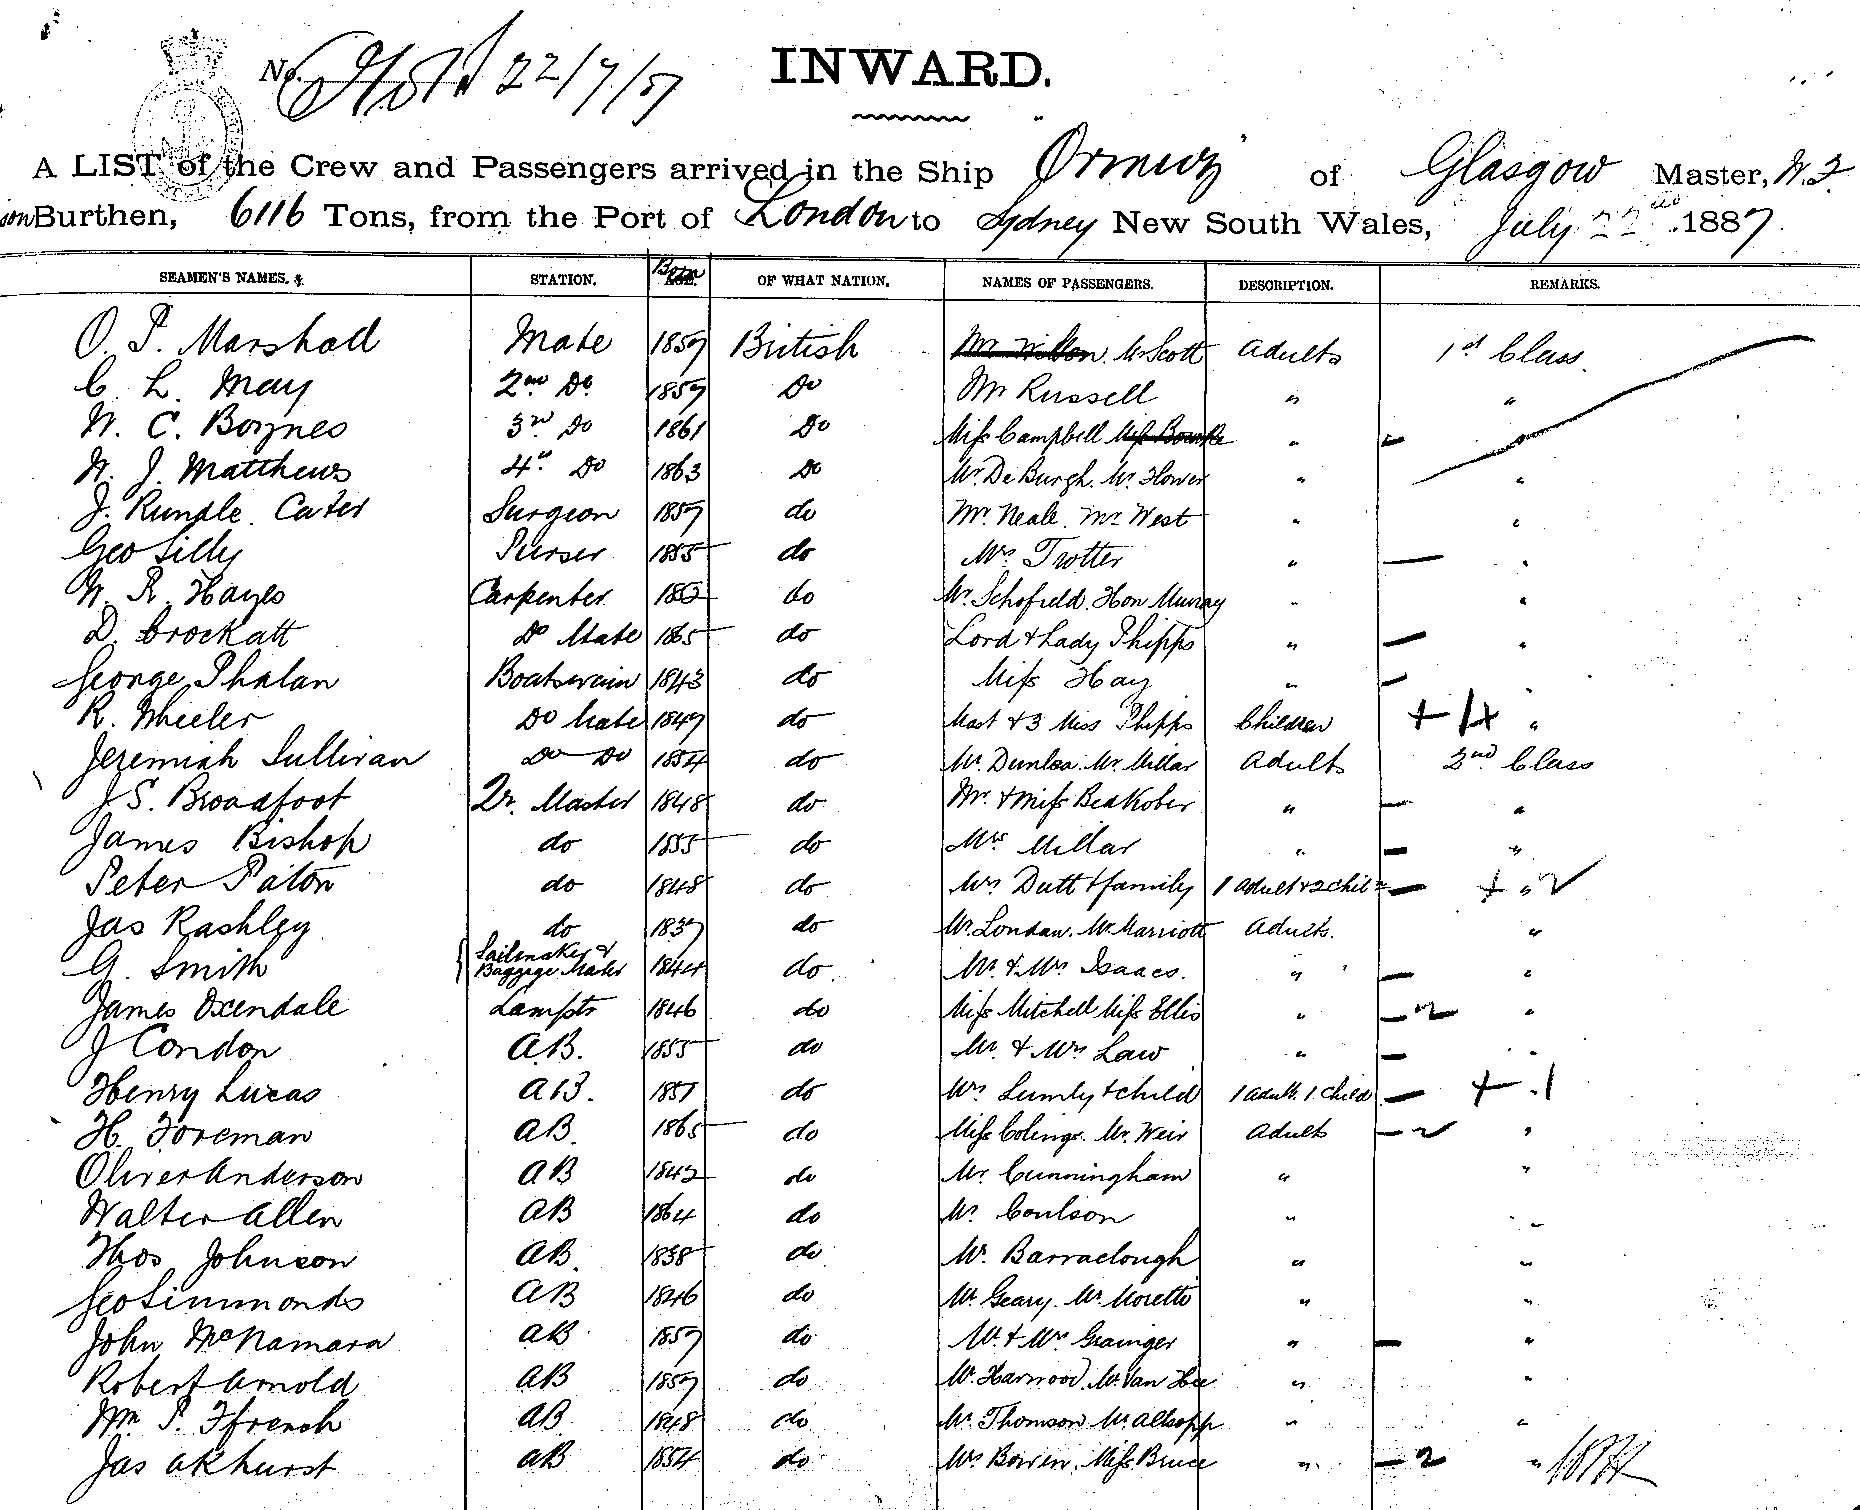 No. 22/7/87
INWARD.
A LIST of the Crew and Passengers arrived in the Ship Ormuz of Glasgow Master, W. F.
son Burthen, 6116 Tons, from the Port of London to Sydney New South Wales, July 22nd 1887
SEAMEN'S NAMES. STATION. Born OF WHAT NATION. NAMES OF PASSENGERS. DESCRIPTION. REMARKS.
O. P. Marshall Mate 1857 British Mr Wilson. Mr Scott adults 1st Class.
C. L. May 2nd Do 1857 Do Mr Russell " "
W. C. Boynes 3rd Do 1861 Do Miss Campbell " — "
W. J. Matthews 4th Do 1863 Do Mr De Burgh. Mr Hower " "
J. Rundle Cater Surgeon 1857 do Mr. Neale. Mr West " "
Geo Lilly Purser 1855 do Mrs Trotter " — "
W. R. Hayes Carpenter do Mr. Schofield. Hon Murray " "
D. Crockatt Do Mate 1865 do Lord & Lady Phipps " — "
George Phalan Boatswain 1843 do Miss Hay " — "
R. Wheeler Do Mate 1847 do Mast & 3 Miss Phipps Children + 4 "
Jeremiah Sullivan Do Do 1854 do Mr. Dunlop. Mr. Millar adults 2nd Class
J. S. Broadfoot Qr. Master 1848 do Mr. & Miss " — "
James Bishop do 1855 do Mrs Millar " — "
Peter Paton do 1848 do Mrs Dutt & family 1 adult & 2 chil — + " 2
Jas Rashley do 1837 do Mr. London. Mr. Marriott adults. "
G. Smith Sailmaker & Baggage Master 1844 do Mr. & Mrs Isaacs. " — "
James Oxendale Lamps 1846 do Miss Mitchell Miss Ellis " — 2 "
J Condon A.B. 1855 do Mr. & Mrs Law " — "
Henry Lucas A B. 1857 do Mrs Lumly & child 1 adult. 1 child — + . 1
H. Foreman AB. 1865 do Miss Colings. Mr. Weir adults — 2 "
Oliver Anderson AB 1842 do Mr. Cunningham " "
Walter Allen AB 1864 do Mr. Coulson " "
Thos Johnson AB. 1838 do Mr. Barraclough " "
Geo Simmonds AB 1846 do Mr. Geary. Mr. Morette " "
John McNamara AB 1857 do Mr. & Mrs Grainger " — "
Robert Arnold AB 1857 do Mr. Harwood. Mr. Van Hee " "
Wm P. Ffrench AB 1848 do Mr. Thomson Mr. Allsopp " "
Jas Akhurst AB 1854 do Mrs Bowen. Miss Bruce " — 2 "